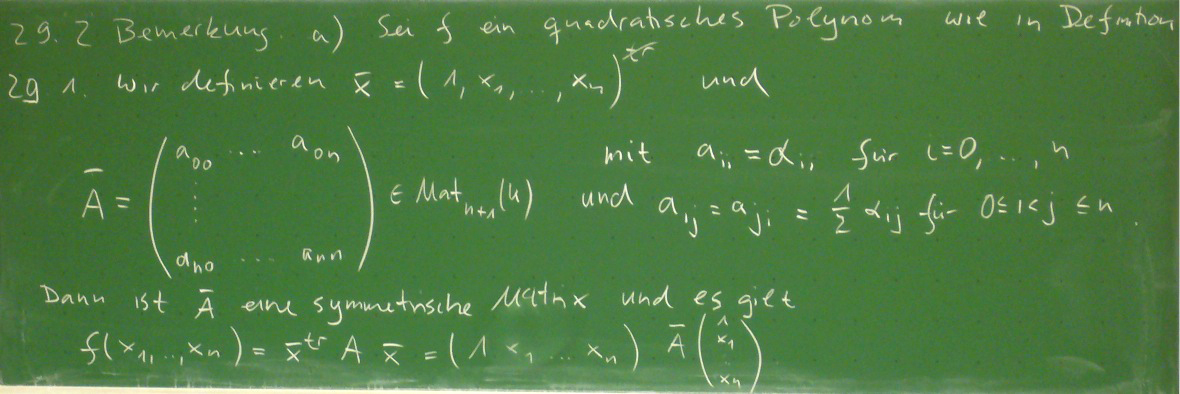 29.2 Bemerkung. a) Sei f ein quadratisches Polynom wie in Definition
29 1. Wir definieren x̄ = (1, x₁, ..., xₙ)^tr und
Ā = ( a₀₀ ... a₀ₙ ⋮ aₙ₀ ... aₙₙ ) ∈ Matₙ₊₁(k)
mit aᵢᵢ = αᵢᵢ für i=0, ..., n
und aᵢⱼ = aⱼᵢ = 1/2 αᵢⱼ für 0≤i<j≤n.
Dann ist Ā eine symmetrische Matrix und es gilt
f(x₁, .., xₙ) = x̄^tr A x̄ = (1 x₁ ... xₙ) Ā ( 1 x₁ ⋮ xₙ )